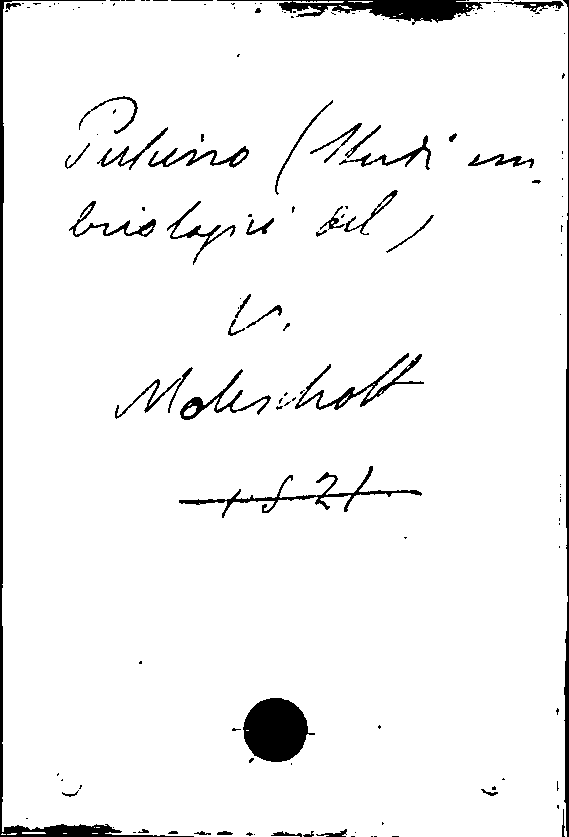 Pulcino (Studi em-
briologici del)
V.
Moleschott
1821